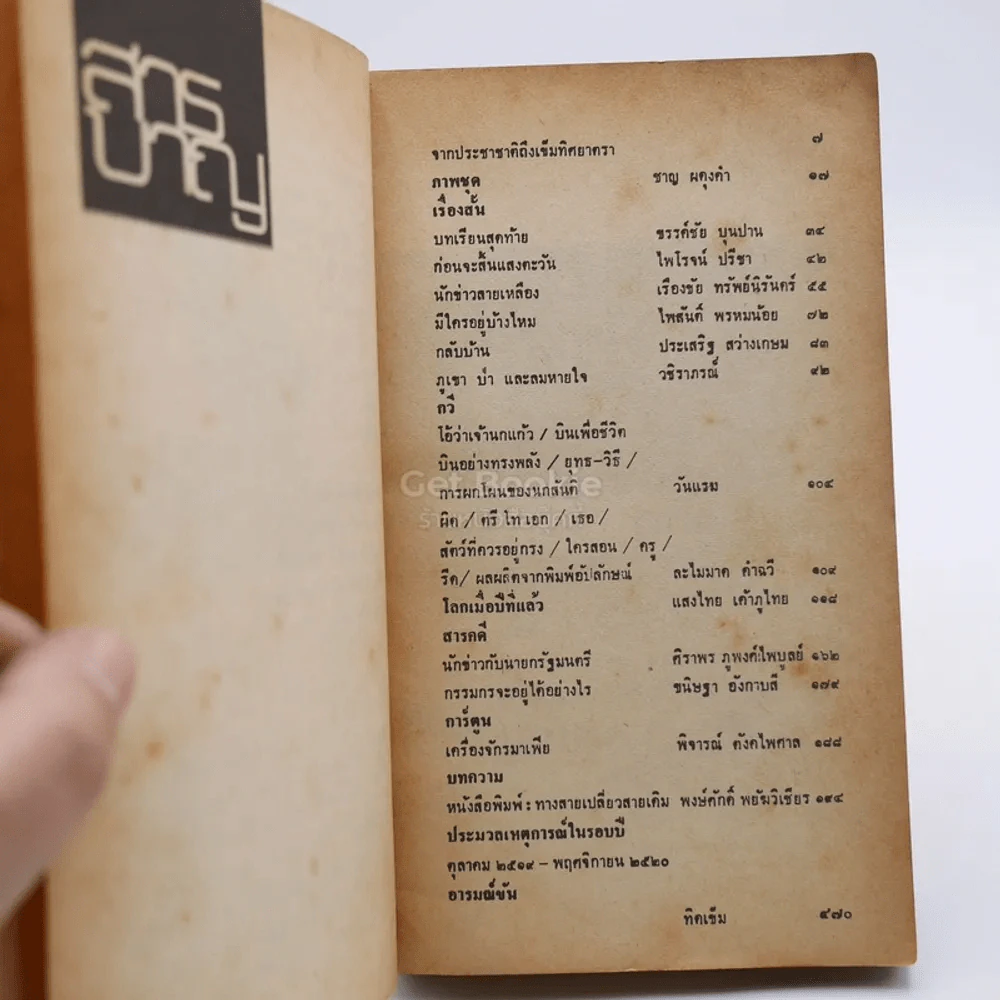 สารบาญ
จากประชาชาติถึงเข็มทิศยาตรา ๗
ภาพชุด ชาญ ผดุงคำ ๑๗
เรื่องสั้น
บทเรียนสุดท้าย ขรรค์ชัย บุนปาน ๓๔
ก่อนจะสิ้นแสงตะวัน ไพโรจน์ ปรีชา ๔๒
นักข่าวสายเหลือง เรืองชัย ทรัพย์นิรันดร์ ๕๕
มีใครอยู่บ้างไหม ไพสันติ์ พรหมน้อย ๗๒
กลับบ้าน ประเสริฐ สว่างเกษม ๘๓
ภูเขา ป่า และลมหายใจ วชิราภรณ์ ๙๒
กวี
โอ้ว่าเจ้านกแก้ว / บินเพื่อชีวิต
บินอย่างทรงพลัง / ยุทธ–วิธี /
การผกโผนของนกสันติ วันแรม ๑๐๔
ผิด / ตรี โท เอก / เธอ /
สัตว์ที่ควรอยู่กรง / ใครสอน / ครู /
รีด/ ผลผลิตจากพิมพ์อัปลักษณ์ ละไมมาด คำฉวี ๑๐๙
โลกเมื่อปีที่แล้ว แสงไทย เค้าภูไทย ๑๑๘
สารคดี
นักข่าวกับนายกรัฐมนตรี ศิราพร ภูพงศ์ไพบูลย์ ๑๖๒
กรรมกรจะอยู่ได้อย่างไร ขนิษฐา อังกาบสี ๑๗๙
การ์ตูน
เครื่องจักรมาเฟีย พิจารณ์ ตังคไพศาล ๑๘๘
บทความ
หนังสือพิมพ์ : ทางสายเปลี่ยวสายเดิม พงษ์ศักดิ์ พยัฆวิเชียร ๑๙๔
ประมวลเหตุการณ์ในรอบปี
ตุลาคม ๒๕๑๙ – พฤศจิกายน ๒๕๒๐
อารมณ์ขัน
ทิดเข็ม ๔๗๐
Get Bookie